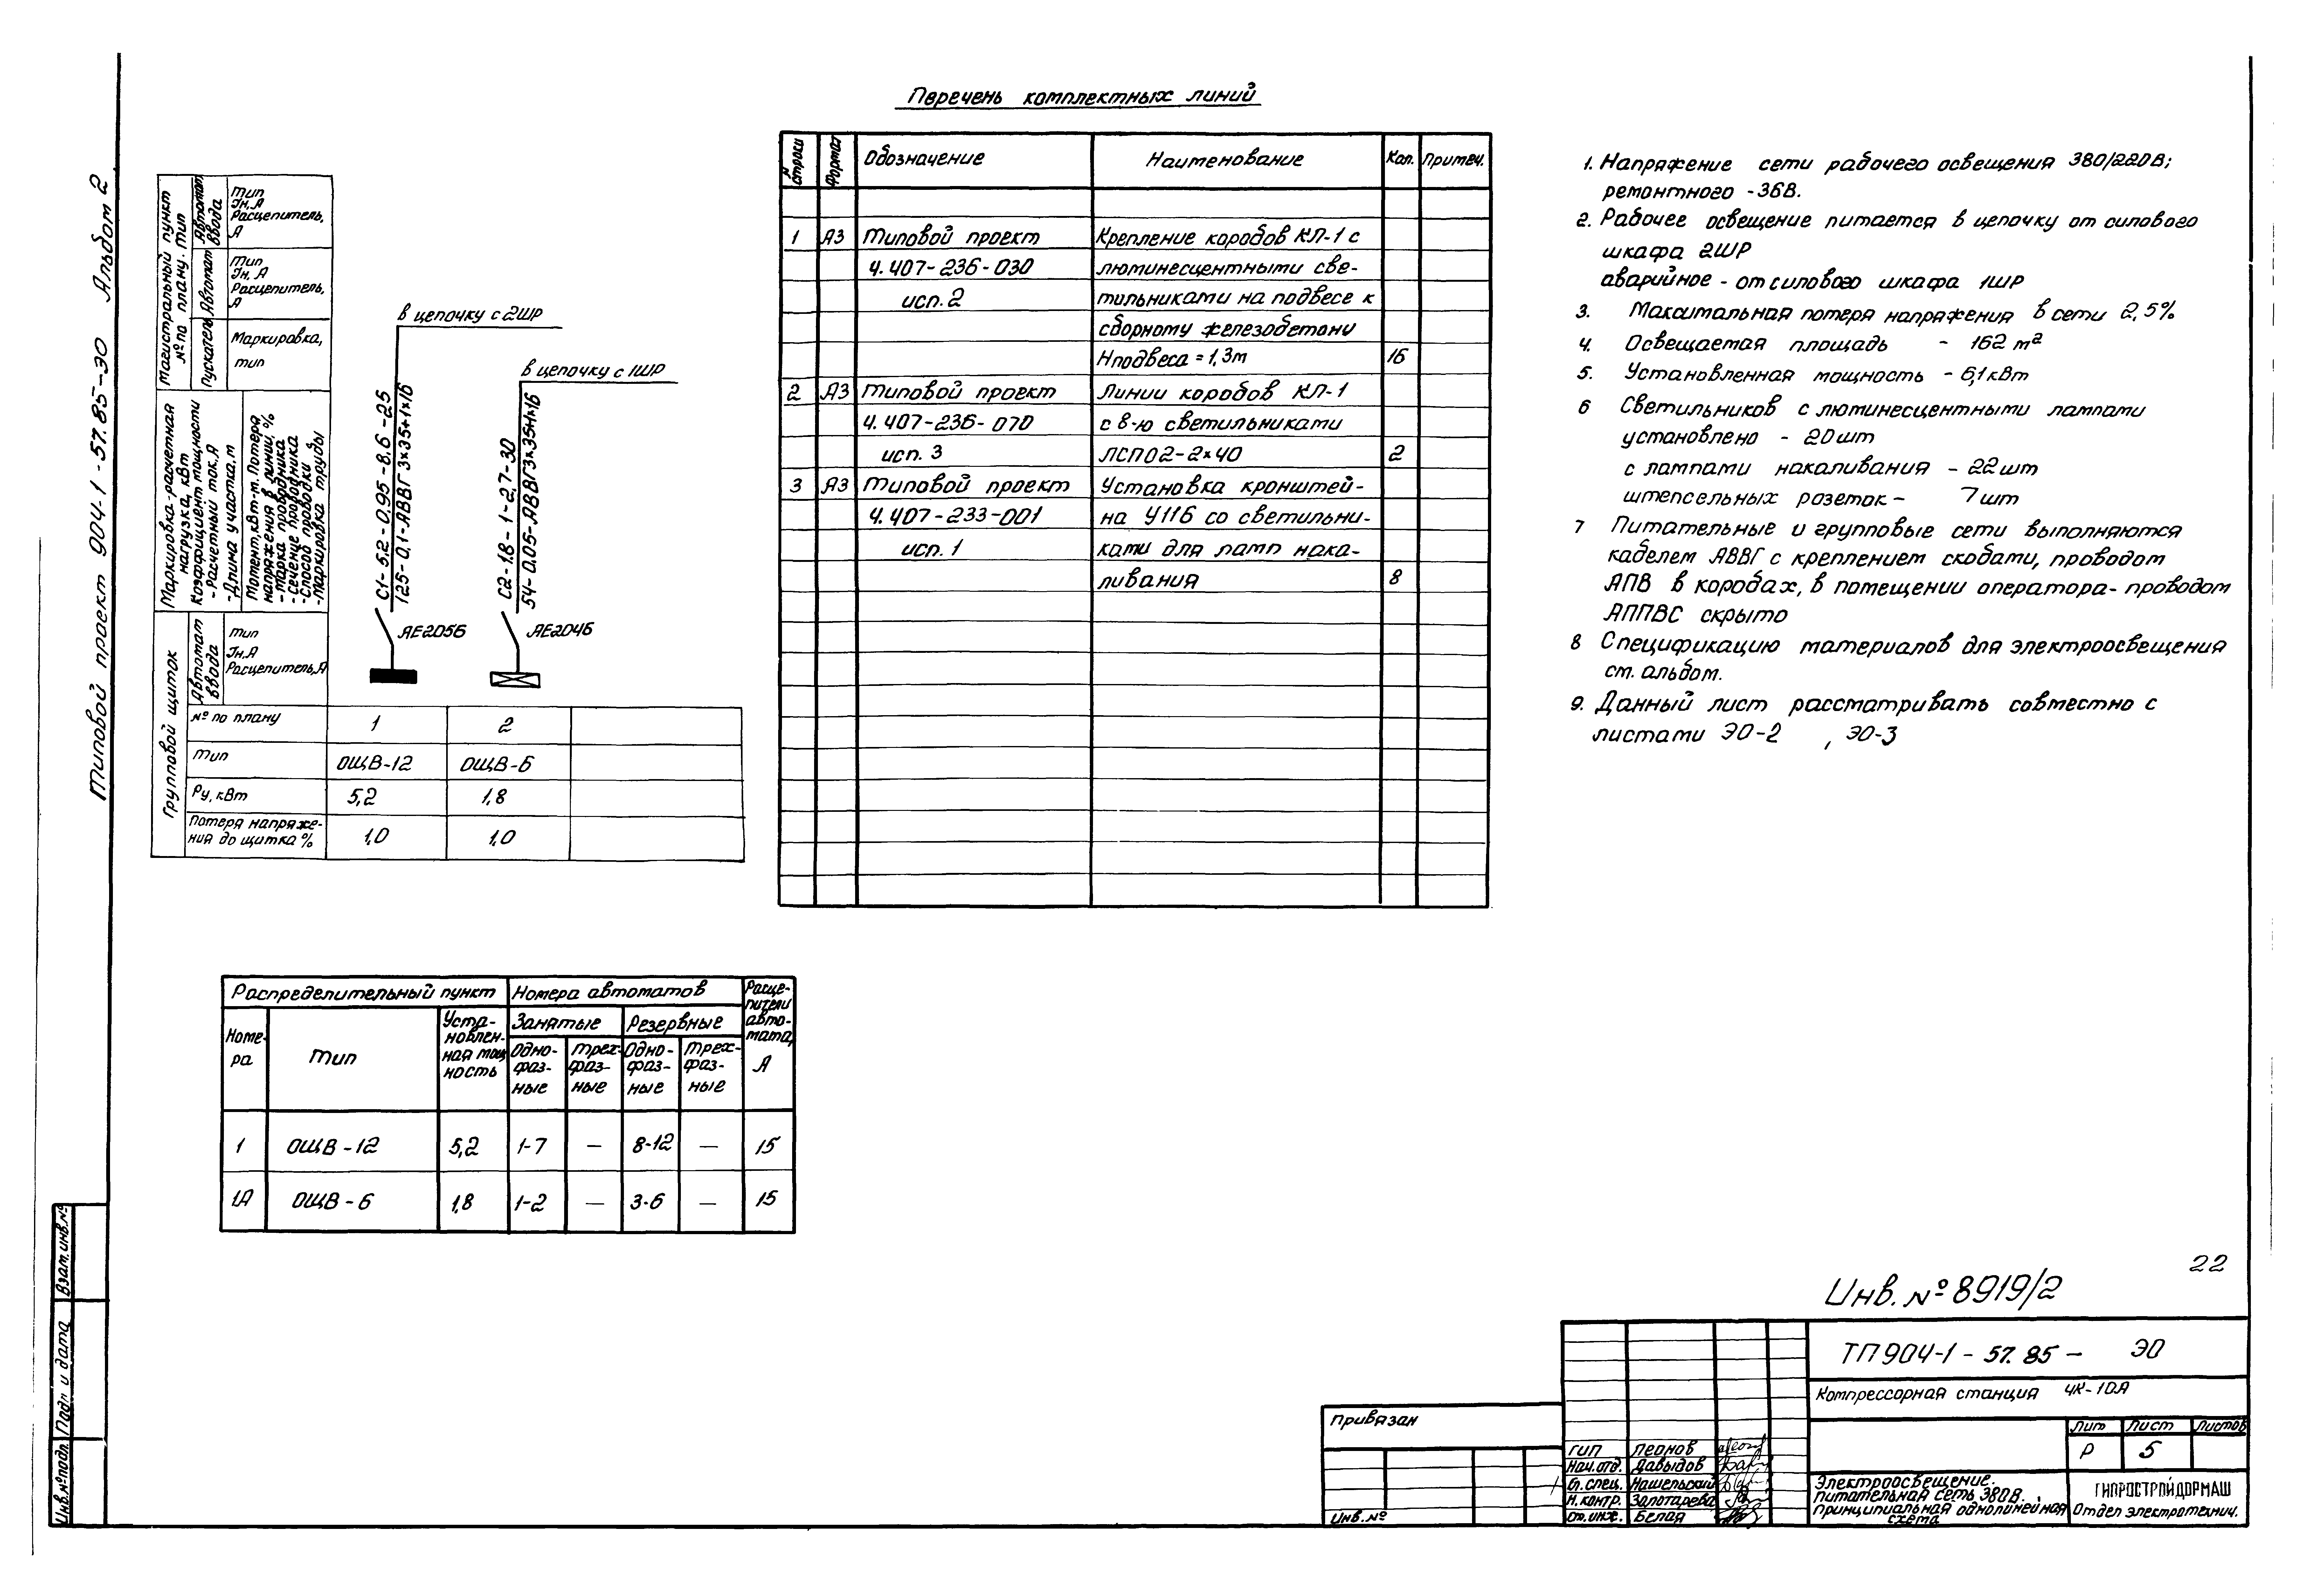 Типовой проект 904-1-57.85-ЭО Альбом 2
Перечень комплектных линий
Магистральный пункт
№ по плану. Тип
Автомат ввода
Тип
Iн, А
Расцепитель, А
Автомат
Тип
Iн, А
Расцепитель, А
Пускатель
Маркировка, тип
Маркировка-расчетная нагрузка, кВт
Коэффициент мощности
- Расчетный ток, А
- Длина участка, м
Момент, кВт-м. Потеря
напряжения в линии, %
- марка проводника
- сечение проводника
- способ проводки
- маркировка трубы
в цепочку с 2ШР
в цепочку с 1ШР
С1-5.2-0.95-8.6-25
125-0,1-АВВГ 3×35+1×16
С2-1.8-1-2,7-30
54-0.05-АВВГ 3×35+1×16
АЕ2056
АЕ2046
Групповой щиток
Автомат ввода
Тип
Iн, А
Расцепитель, А
№ по плану 1 2
Тип ОЩВ-12 ОЩВ-6
Ру, кВт 5,2 1,8
Потеря напряже-
ния до щитка % 1,0 1,0
№ строки Формат Обозначение Наименование Кол. Примеч.
1 А3 Типовой проект Крепление коробов КЛ-1 с
4.407-236-030 люминесцентными све-
исп. 2 тильниками на подвесе к
сборному железобетону
Нподвеса = 1,3м 16
2 А3 Типовой проект Линии коробов КЛ-1
4.407-236-070 с 8-ю светильниками
исп. 3 ЛСП02-2×40 2
3 А3 Типовой проект Установка кронштей-
4.407-233-001 на У116 со светильни-
исп. 1 ками для ламп нака-
ливания 8
1. Напряжение сети рабочего освещения 380/220В;
ремонтного -36В.
2. Рабочее освещение питается в цепочку от силового
шкафа 2ШР
аварийное - от силового шкафа 1ШР
3. Максимальная потеря напряжения в сети 2,5%
4. Освещаемая площадь - 162 м²
5. Установленная мощность - 6,1 кВт
6 Светильников с люминесцентными лампами
установлено - 20шт
с лампами накаливания - 22шт
штепсельных розеток - 7шт
7 Питательные и групповые сети выполняются
кабелем АВВГ с креплением скобами, проводом
АПВ в коробах, в помещении оператора- проводом
АППВС скрыто
8 Спецификацию материалов для электроосвещения
см. альбом.
9. Данный лист рассматривать совместно с
листами ЭО-2 , ЭО-3
Распределительный пункт Номера автоматов Расце-
пители
авто-
мата,
А
Номе-
ра
Тип
Уста-
новлен-
ная мощ
ность
Занятые Резервные
Одно-
фаз-
ные
Трех-
фаз-
ные
Одно-
фаз-
ные
Трех-
фаз-
ные
1 ОЩВ-12 5,2 1-7 — 8-12 — 15
1А ОЩВ-6 1,8 1-2 — 3-6 — 15
22
Инв. №8919/2
Взам. инв. №
Подп и дата
Инв.№подл.
Привязан
Инв. №
ГИП Леонов
Нач.отд. Давыдов
Гл. спец. Нашельский
Н.контр. Золотарева
Ст. инж. Белая
ТП 904-1-57.85- ЭО
Компрессорная станция 4К-10А
Лит Лист Листов
Р 5
Электроосвещение.
Питательная сеть 380В.
Принципиальная однолинейная
схема
ГИПРОСТРОЙДОРМАШ
Отдел электротехнич.